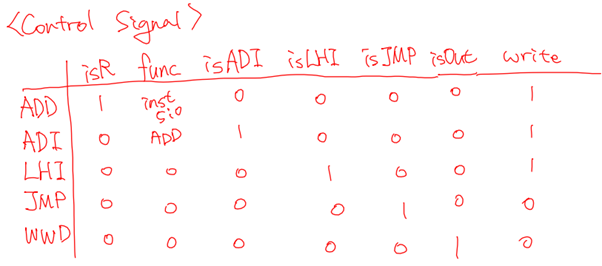 <Control Signal>
isR func isADI isLHI isJMP isOut write
ADD 1 inst 0 0 0 0 1
5:0
ADI 0 ADD 1 0 0 0 1
LHI 0 0 0 1 0 0 1
JMP 0 0 0 0 1 0 0
WWD 0 0 0 0 0 1 0